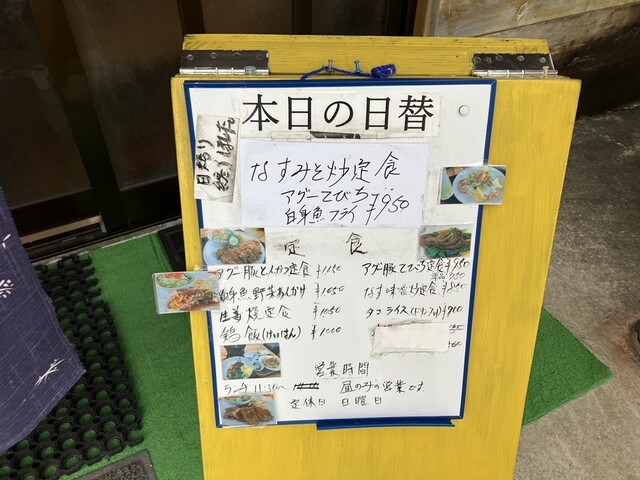 本日の日替
日替り
終りました。
なすみそ炒定食
アグーてびち
白身魚フライ ¥950
定食
アグー豚とんカツ定食 ¥1150
白身魚野菜あんかけ ¥1050
生姜焼定食 ¥1050
鶏飯(けいはん) ¥1000
アグー豚てびち定食 ¥950
単品 750
なす味噌炒定食 ¥850
タコライス(ドリンク付) ¥900
営業時間
ランチ 11:30~ 昼のみの営業です
定休日 日曜日